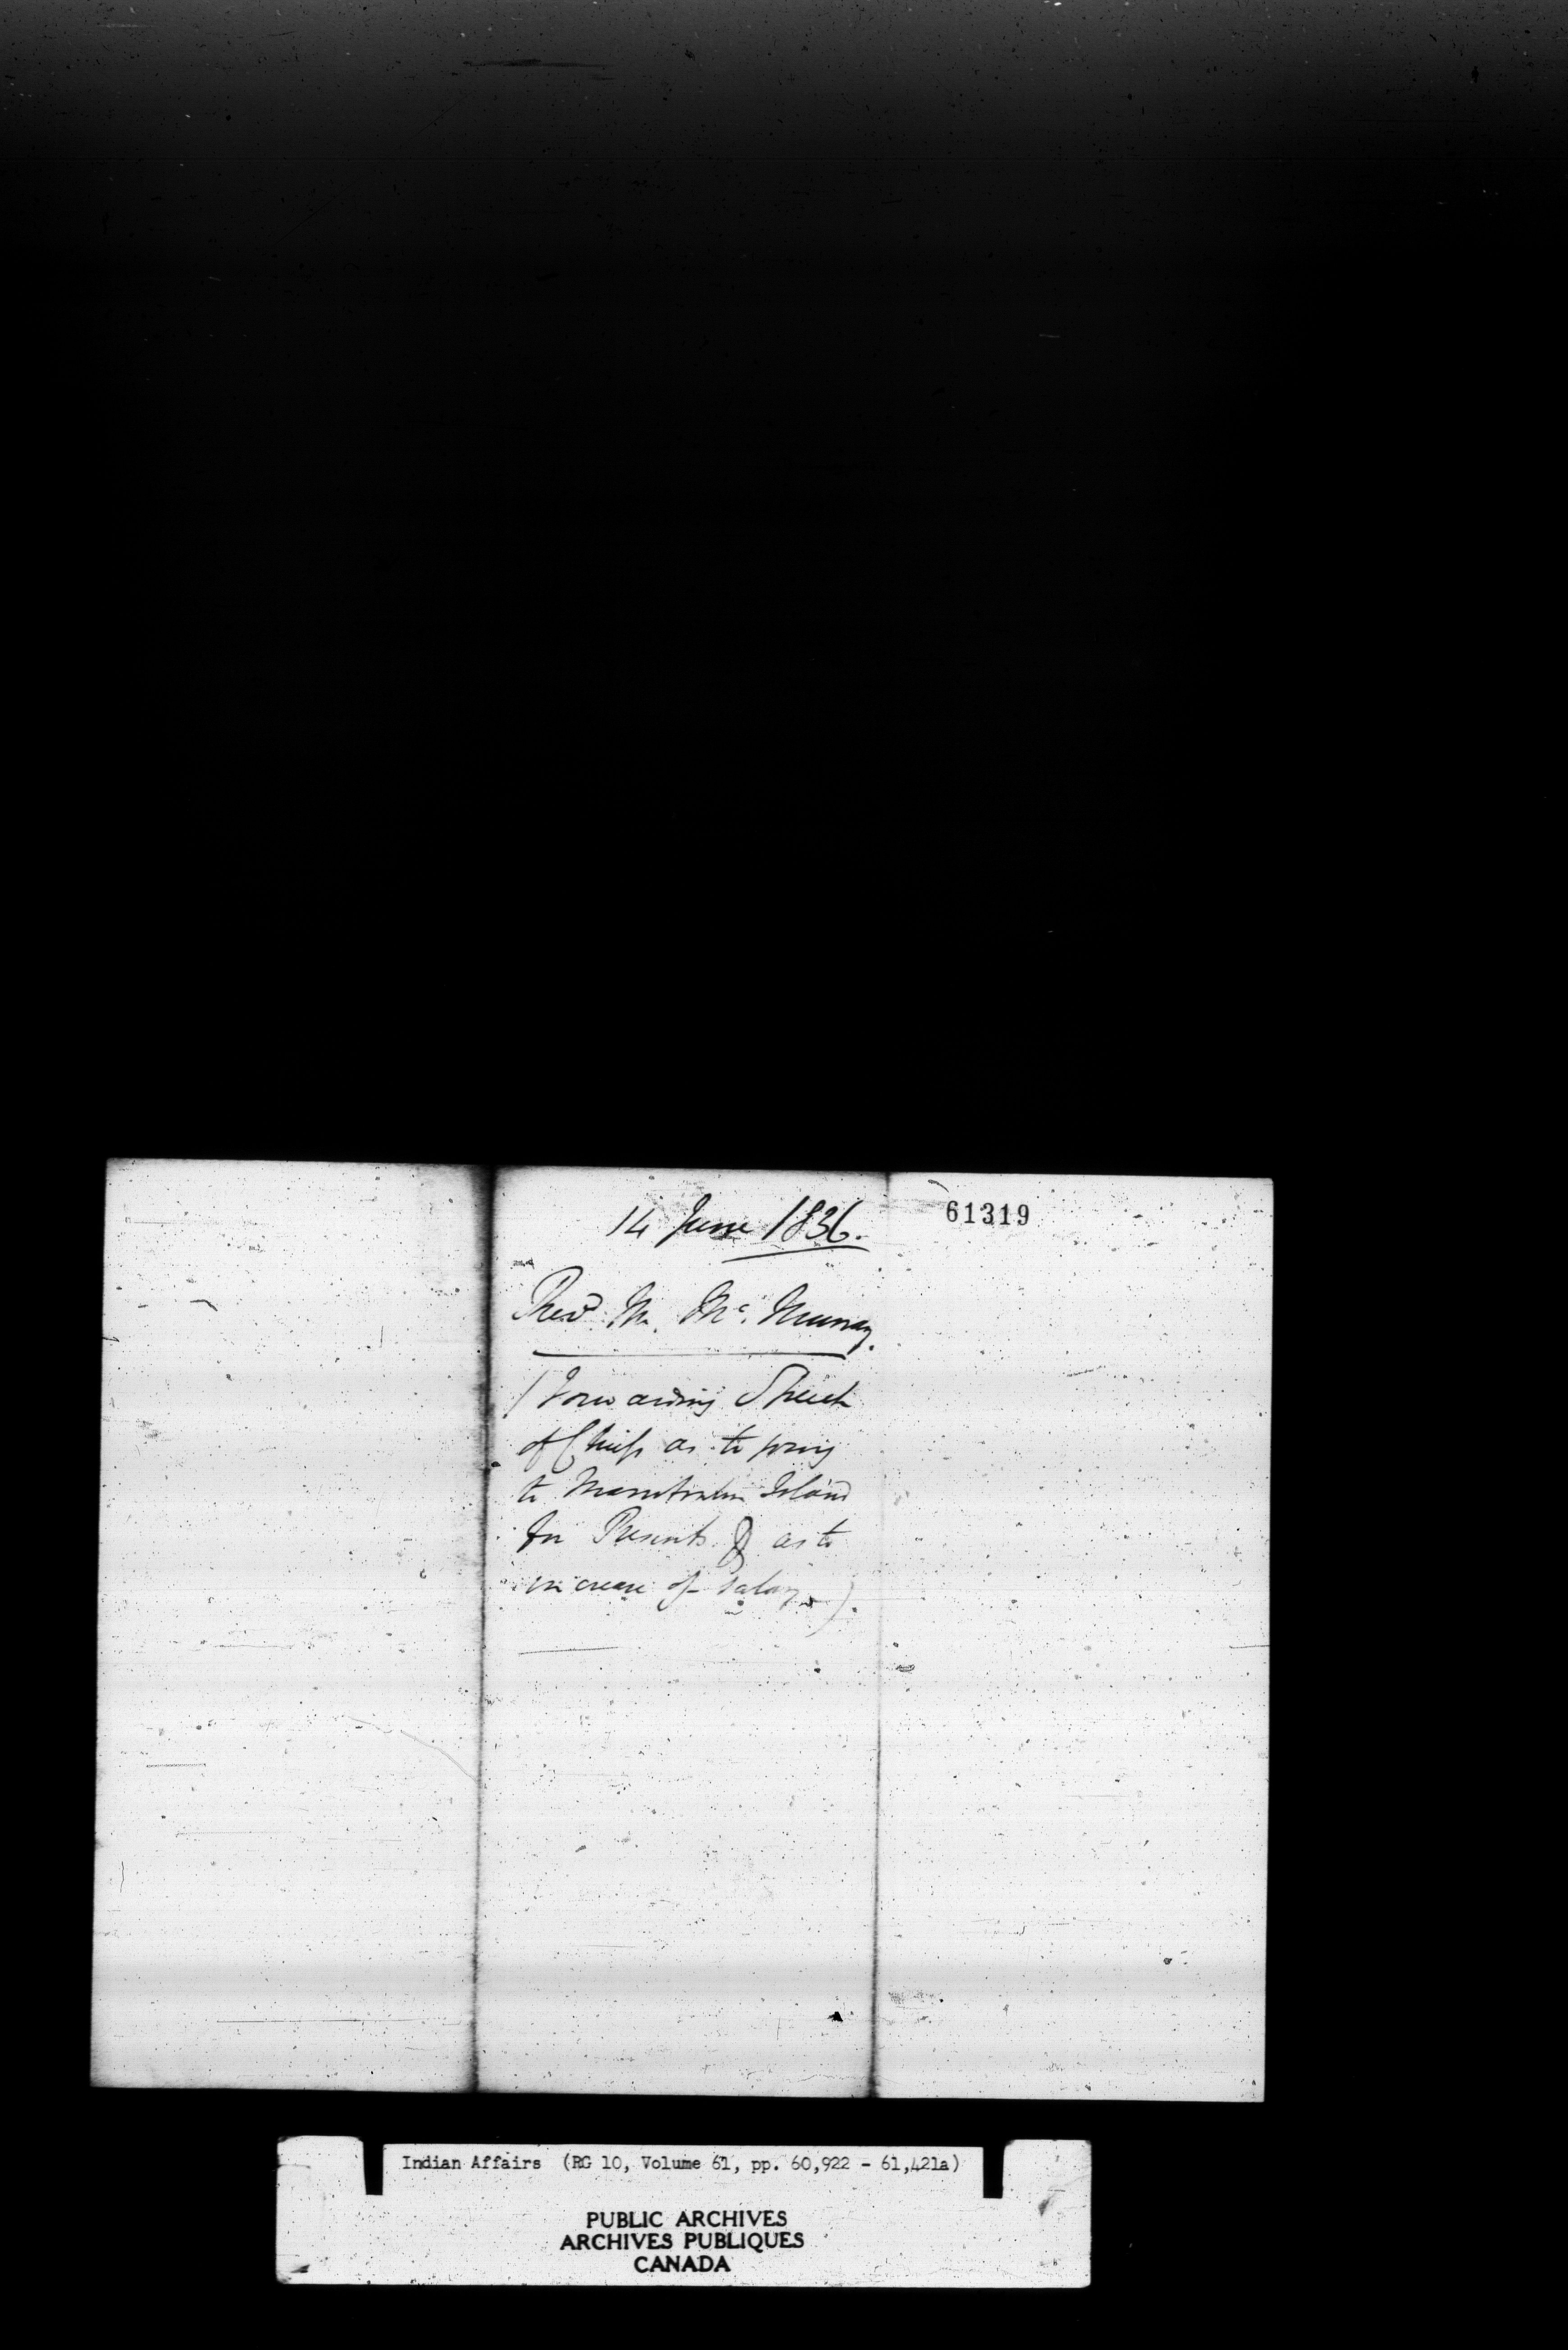 14 June 1836.
61319
Revd Mr. Mc. Murray.
(Forwarding Speech
of Chiefs as to going
to Manitoulin Island
for Presents & as to
increase of salary).
Indian Affairs (RG 10, Volume 61, pp. 60,922 - 61,421a)
PUBLIC ARCHIVES
ARCHIVES PUBLIQUES
CANADA